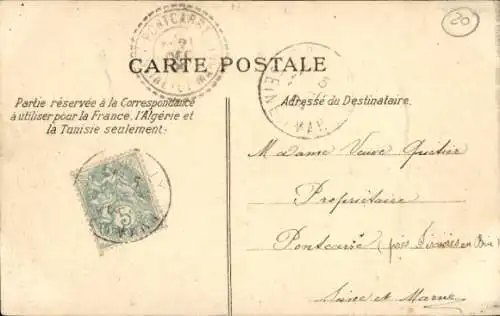 20
PONTCARRÉ
CARTE POSTALE
Partie réservée à la Correspondance
à utiliser pour la France, l'Algérie et
la Tunisie seulement:
Adresse du Destinataire.
5
Madame Veuve
Propriétaire
Pontcarré (par en Brie)
Seine et Marne